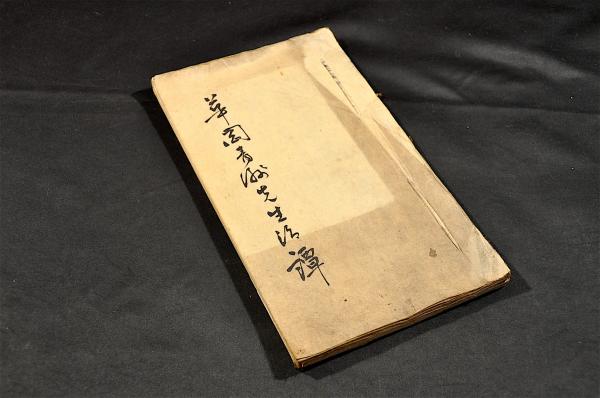 華岡青洲先生治譚